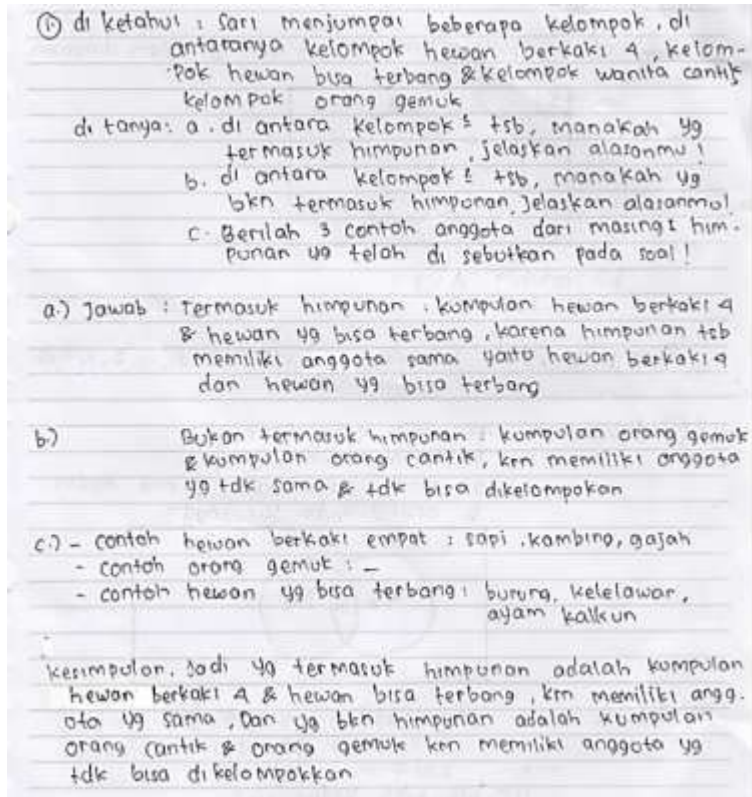 ① di ketahui : Sari menjumpai beberapa kelompok, di
antaranya kelompok hewan berkaki 4, kelom-
pok hewan bisa terbang & kelompok wanita cantik
kelompok orang gemuk
di tanya: a. di antara kelompok² tsb, manakah yg
termasuk himpunan, jelaskan alasanmu!
b. di antara kelompok² tsb, manakah yg
bkn termasuk himpunan, jelaskan alasanmu!
c. Berilah 3 contoh anggota dari masing² him-
punan yg telah di sebutkan pada soal!
a.) Jawab : Termasuk himpunan : kumpulan hewan berkaki 4
& hewan yg bisa terbang, karena himpunan tsb
memiliki anggota sama yaitu hewan berkaki 4
dan hewan yg bisa terbang
b.) Bukan termasuk himpunan : kumpulan orang gemuk
& kumpulan orang cantik, krn memiliki anggota
yg tdk sama & tdk bisa dikelompokan
c.) - contoh hewan berkaki empat : sapi, kambing, gajah
- contoh orang gemuk : -
- contoh hewan yg bisa terbang : burung, kelelawar,
ayam kalkun
kesimpulan. Jadi yg termasuk himpunan adalah kumpulan
hewan berkaki 4 & hewan bisa terbang, krn memiliki angg-
ota yg sama, Dan yg bkn himpunan adalah kumpulan
orang cantik & orang gemuk krn memiliki anggota yg
tdk bisa di kelompokkan